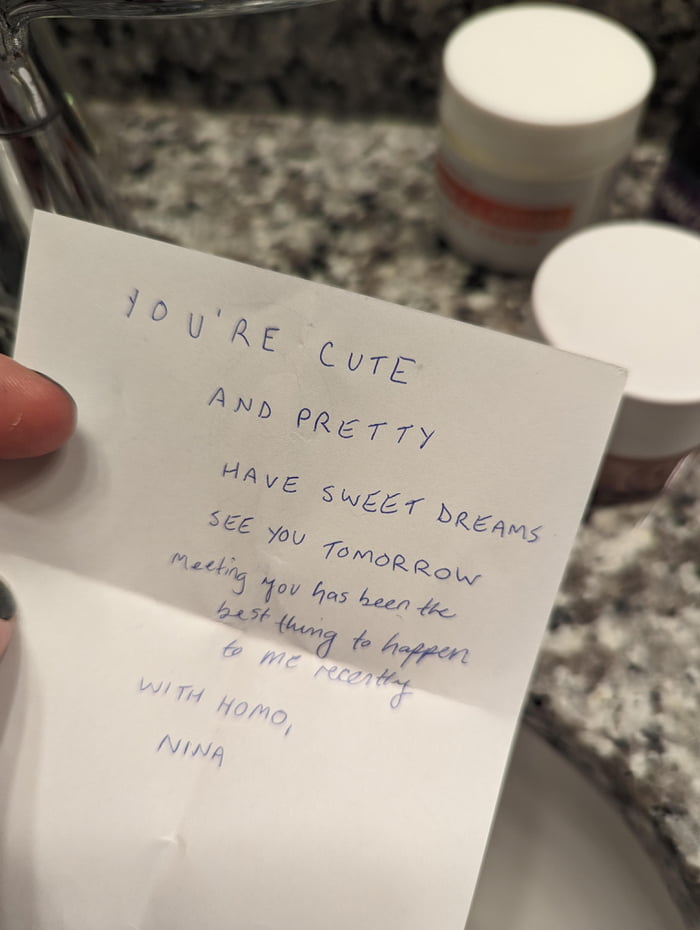 YOU'RE CUTE
AND PRETTY
HAVE SWEET DREAMS
SEE YOU TOMORROW
Meeting you has been the
best thing to happen
to me recently
WITH HOMO,
NINA